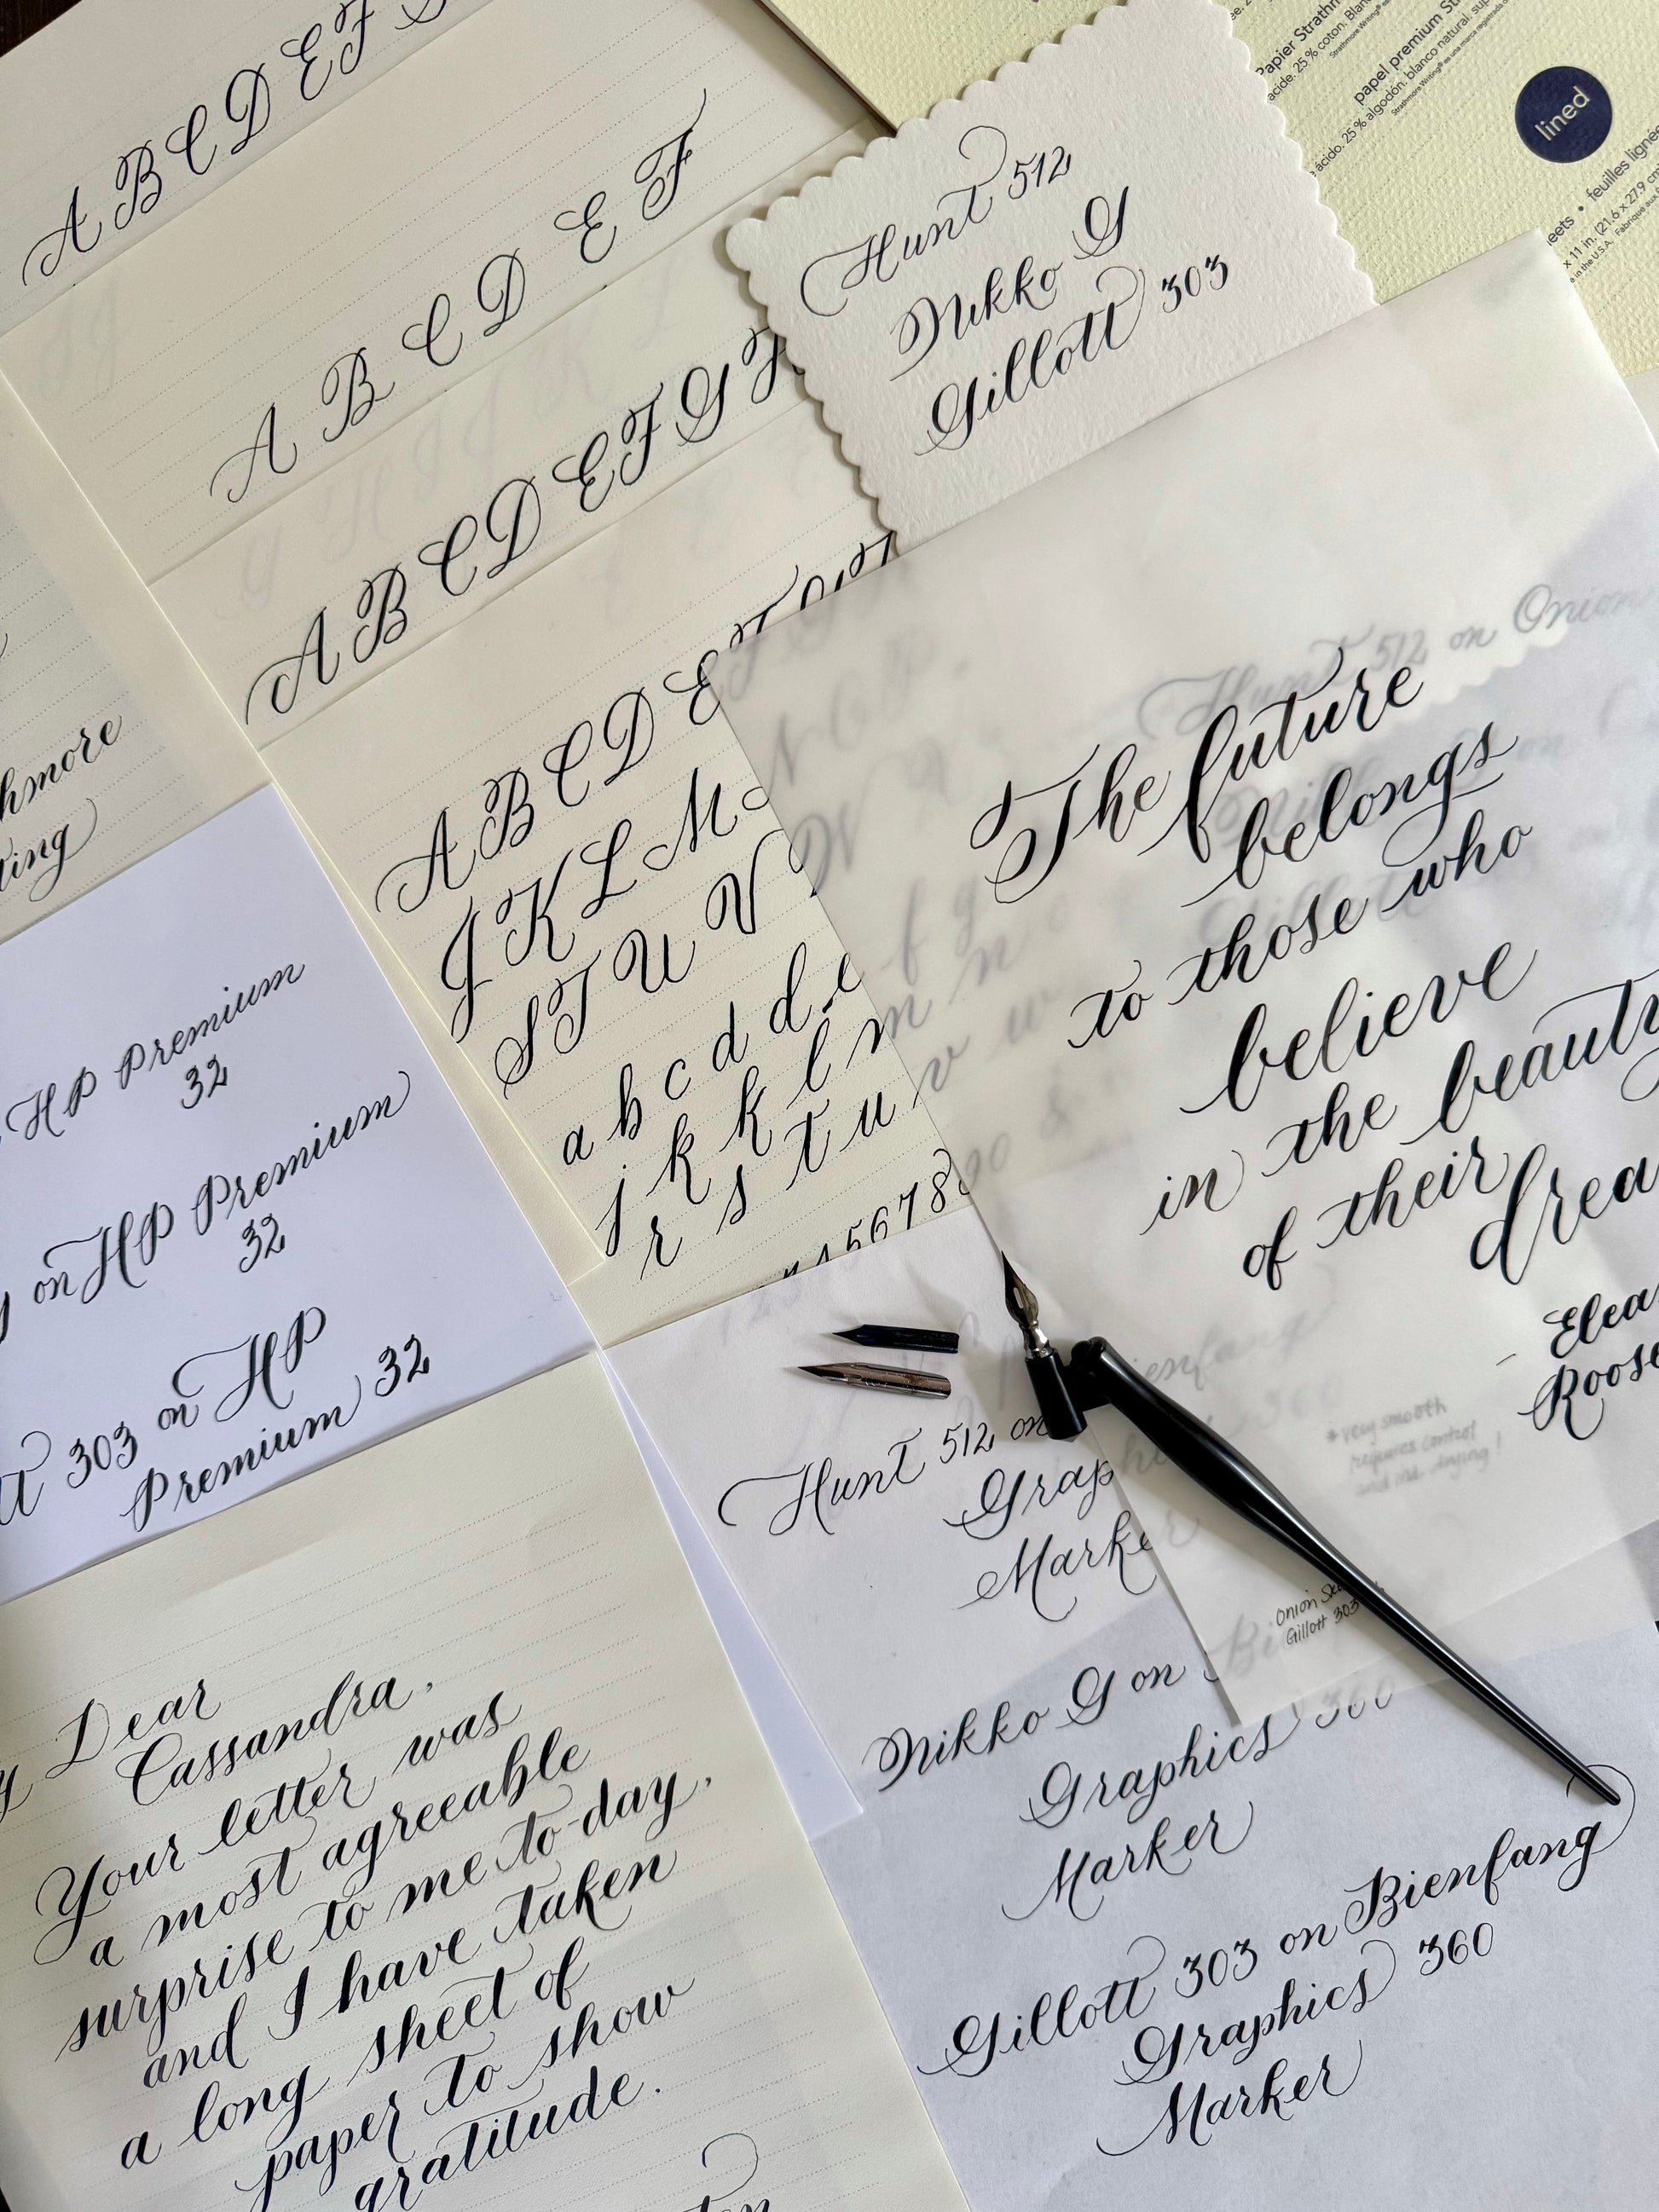 A B C D E F
A B C D E F
A B C D E F G
A B C D E F
J K L M
S T U V W
a b c d d e f g
j k k l m n
r s t u v w
5 6 7 8
Papier Strathm
acide. 25 % coton. Blan
papel premium St
ácido. 25 % algodón. blanco natural. sup
Strathmore Writing® es una marca registrada d
lined
eets • feuilles lignée
x 11 in. (21.6 x 27.9 cm
e in the U.S.A.
Hunt 512
Nikko G
Gillott 303
Hunt 512 on Onion
The future
belongs
to those who
believe
in the beauty
of their
drea
Elea
Roose
* very smooth
requires control
and ink drying!
Onion Sk
Gillott 303
hmore
ting
HP Premium
32
on HP Premium
32
tt 303 on HP
Premium 32
Hunt 512 on Bienfang
Graphics 360
Marker
Nikko G on Bi
Graphics 360
Marker
Gillott 303 on Bienfang
Graphics 360
Marker
y Dear
Cassandra,
Your letter was
a most agreeable
surprise to me to-day,
and I have taken
a long sheet of
paper to show
gratitude.